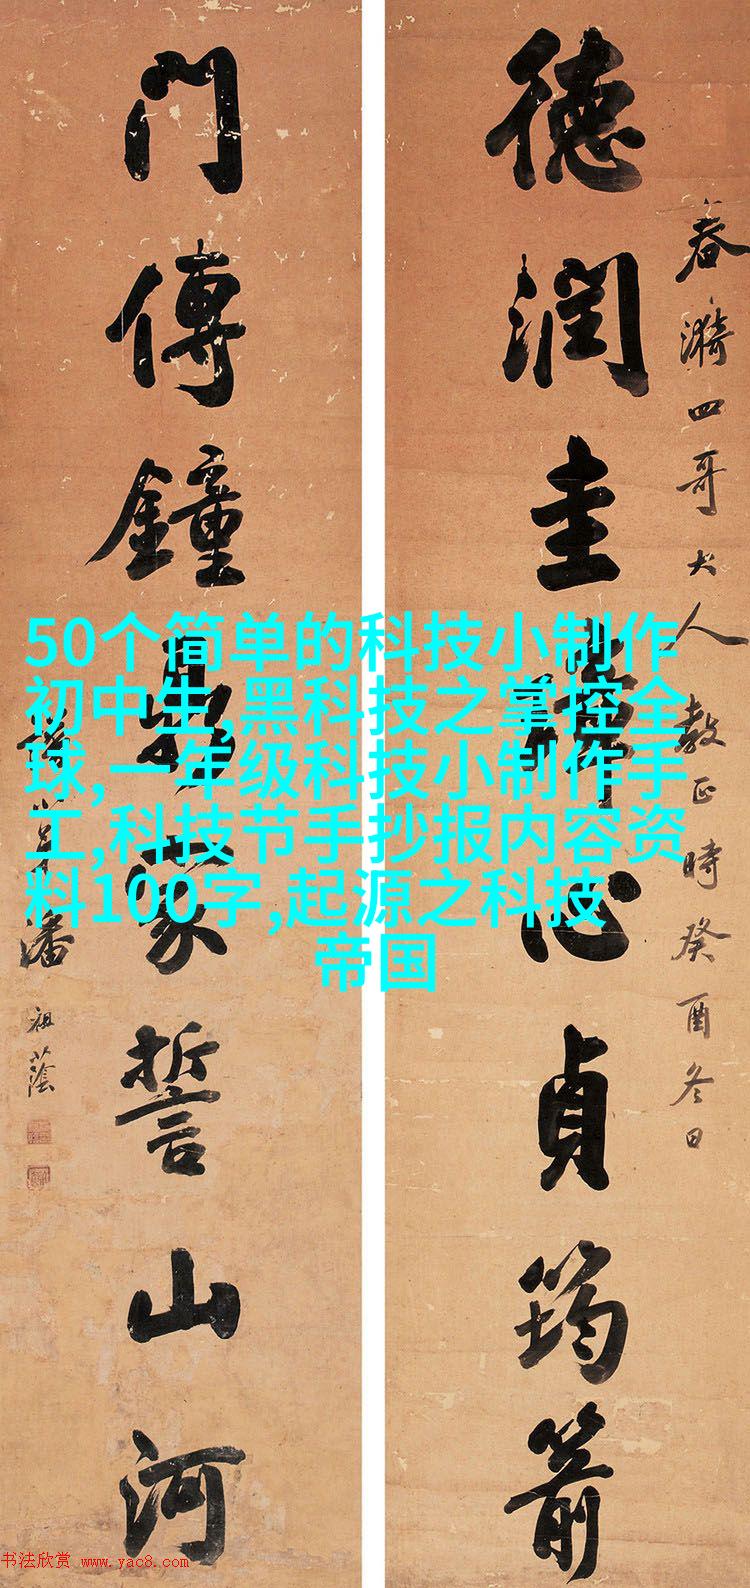 德潤圭璋心貞筠箭
春漪四哥大人教正時癸酉冬日
門傳鐘鼎家誓山河
潘祖蔭
50个简单的科技小制作
初中生,黑科技之掌控全
球,一年级科技小制作手
工,科技节手抄报内容资
料100字,起源之科技
帝国
书法欣赏 www.yac8.com